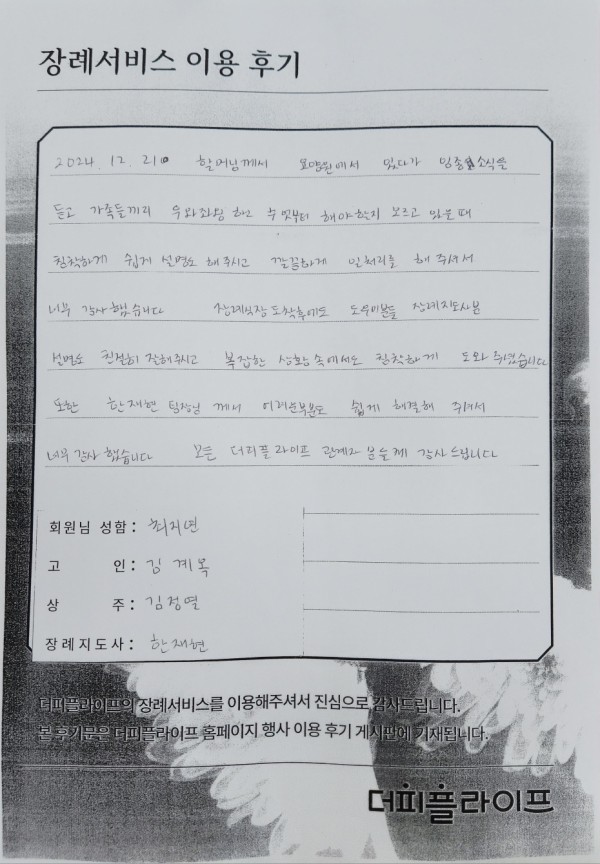 장례서비스 이용 후기
2024. 12. 21 할머님께서 요양원에서 있다가 임종 소식을
듣고 가족들끼리 우와좌왕 하고 무엇부터 해야할지 모르고 있을때
침착하게 쉽게 설명도 해주시고 깔끔하게 일처리를 해 주셔서
너무 감사했습니다 장례식장 도착후에도 도우미분들 장례지도사분
설명도 친절히 잘해주시고 복잡한 상황속에서도 침착하게 도와주셨습니다
또한 한재현 팀장님 께서 어려운부분도 쉽게 해결해 주셔서
너무 감사했습니다 모든 더피플라이프 관계자 분들께 감사드립니다
회원님 성함: 최지연
고 인: 김계옥
상 주: 김정열
장례지도사: 한재현
더피플라이프의 장례서비스를 이용해주셔서 진심으로 감사드립니다.
본 후기문은 더피플라이프 홈페이지 행사 이용 후기 게시판에 기재됩니다.
더피플라이프